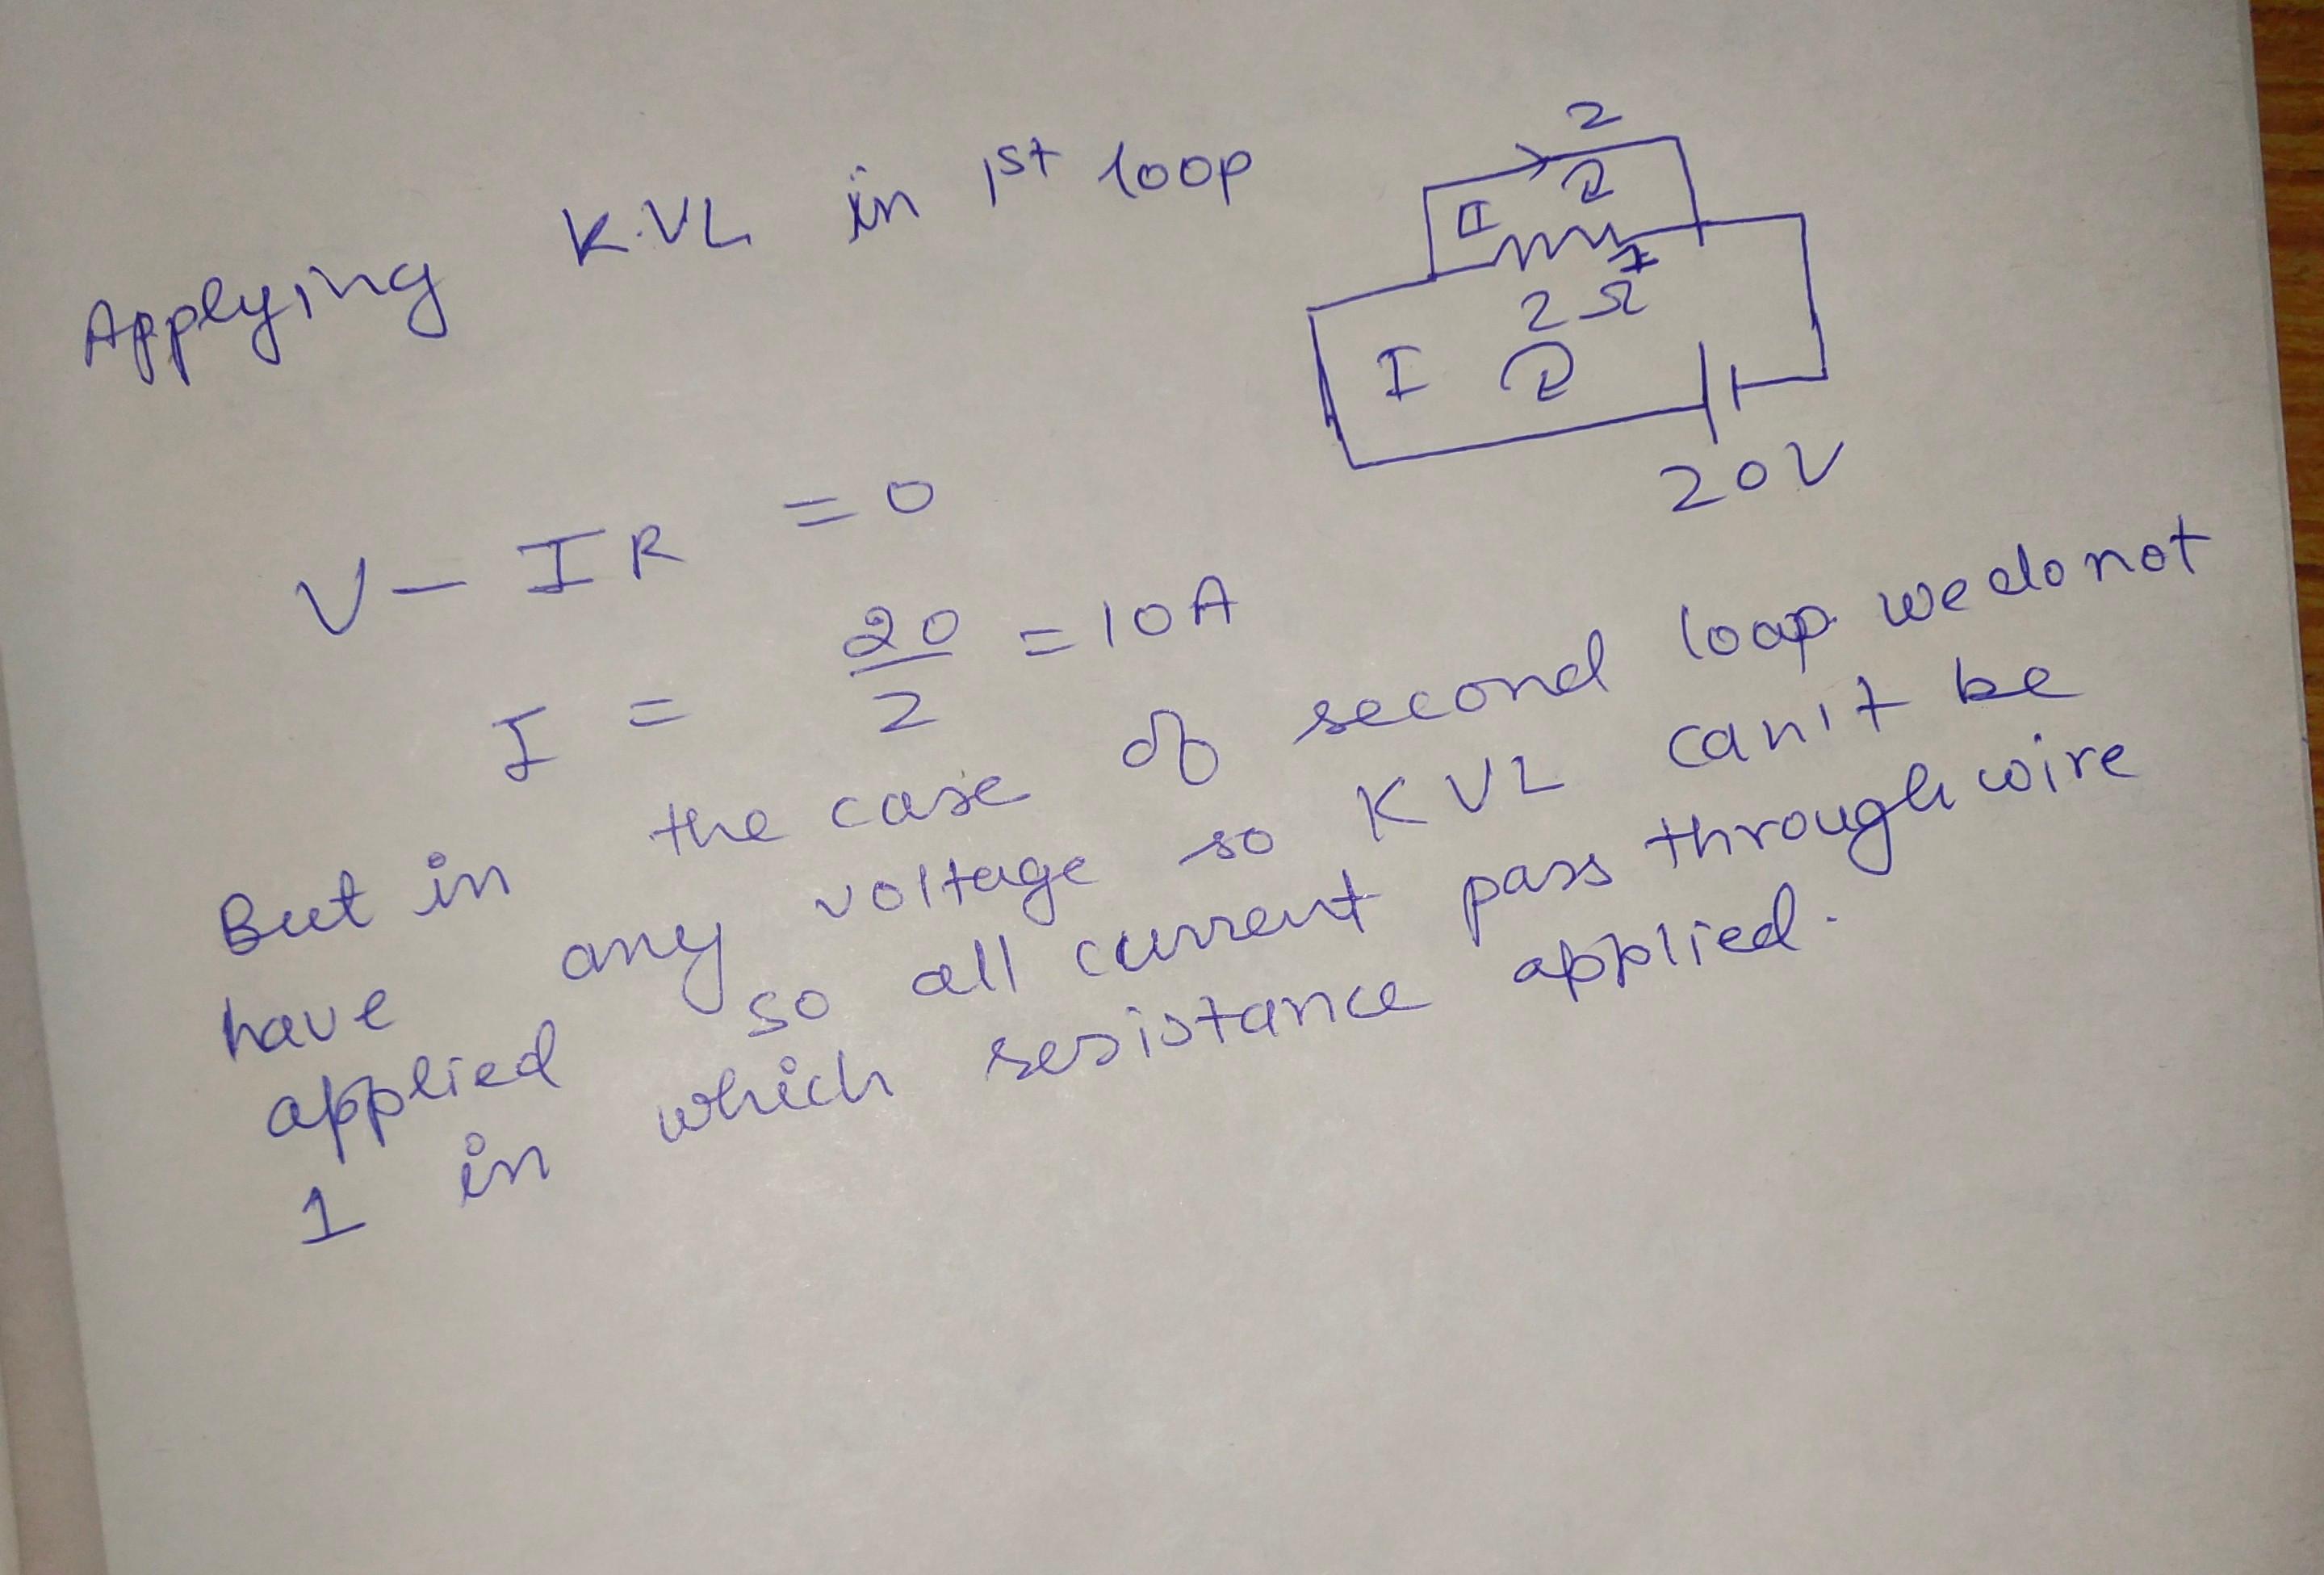 Applying K.VL in 1st loop
2
I
2 Ω
1
I
20V
V - IR = 0
I = 20/2 = 10A
But in the case of second loop we do not
have any voltage so KVL can't be
applied so all current pass through wire
1 in which resistance applied.